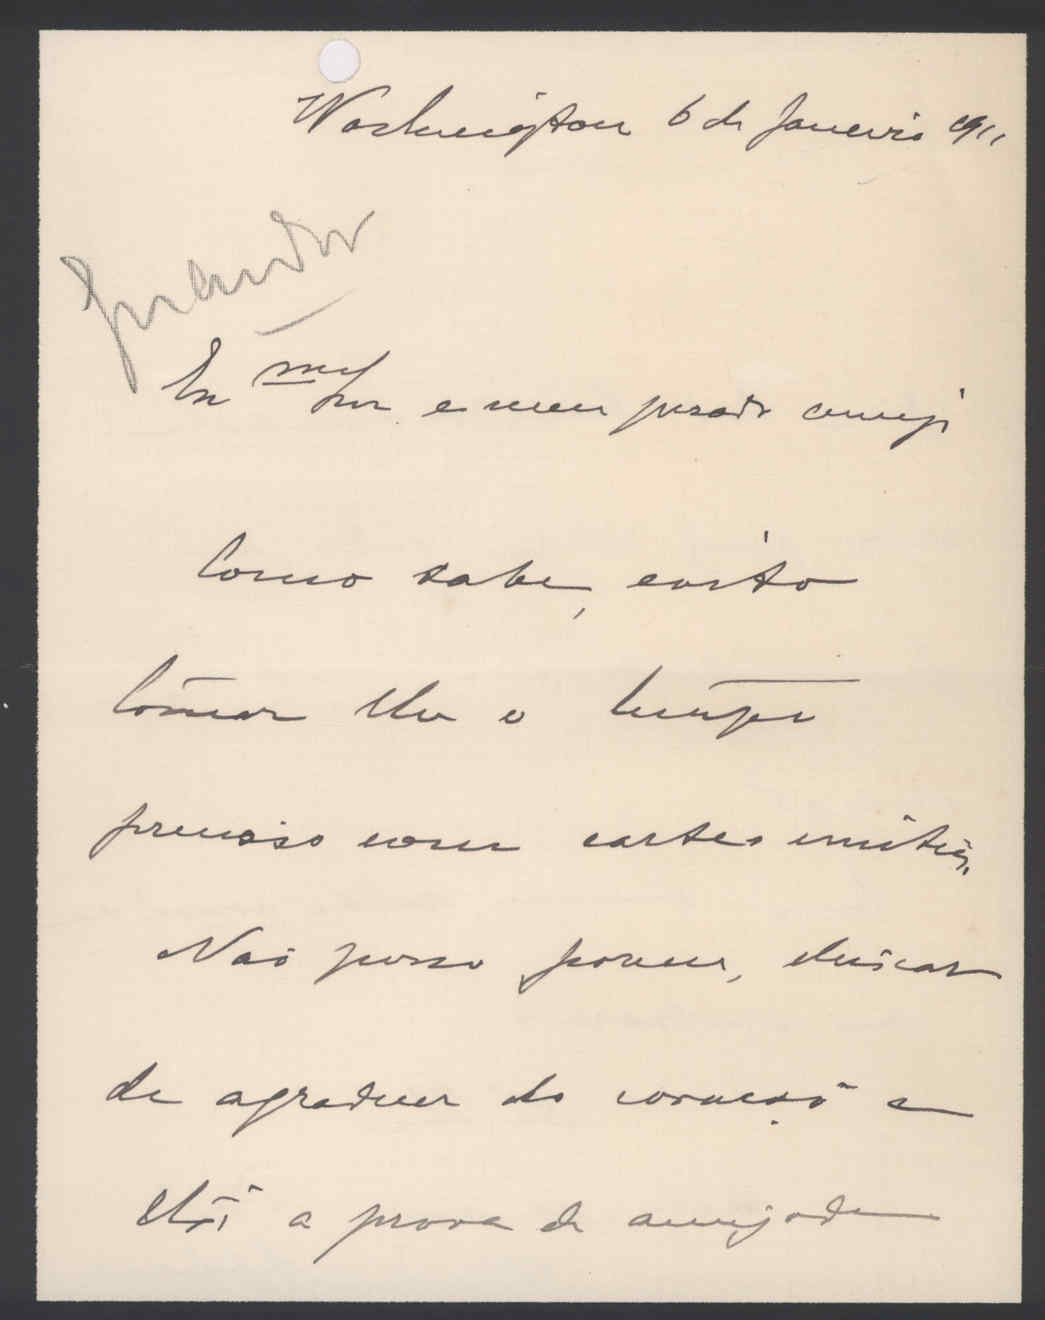 Washington 6 de Janeiro 1911
Guardar
Exmo Snr e meu presado amigo
Como sabe, evito
tomar lhe o tempo
precioso com cartas inuteis.
Não posso porem, deixar
de agradecer do coração a
a prova de amizade